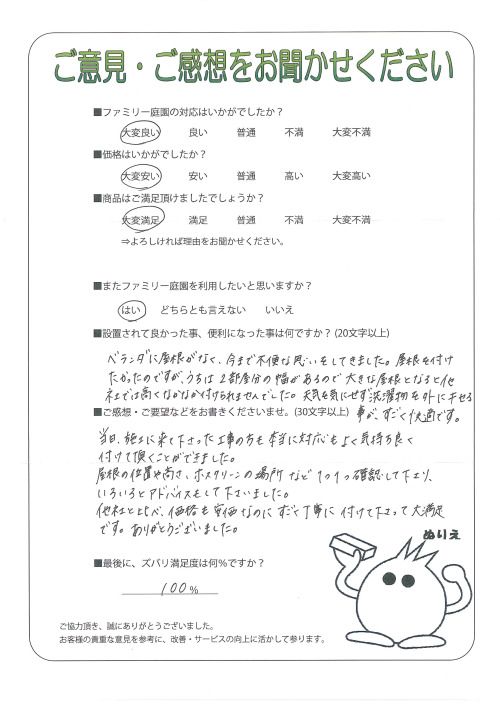 ご意見・ご感想をお聞かせください
■ファミリー庭園の対応はいかがでしたか？
大変良い 良い 普通 不満 大変不満
■価格はいかがでしたか？
大変安い 安い 普通 高い 大変高い
■商品はご満足頂けましたでしょうか？
大変満足 満足 普通 不満 大変不満
⇒よろしければ理由をお聞かせください。
■またファミリー庭園を利用したいと思いますか？
はい どちらとも言えない いいえ
■設置されて良かった事、便利になった事は何ですか？(20文字以上)
ベランダに屋根がなく、今まで不便な思いをしてきました。屋根を付け
たかったのですが、うちは2部屋分の幅があるので大きな屋根となると他
社では高くなかなか付けられませんでした。天気を気にせず洗濯物を外に干せる
事が、すごく快適です。
■ご感想・ご要望などをお書きくださいませ。(30文字以上)
当日、施工に来て下さった工事の方も本当に対応もよく気持ち良く
付けて頂くことができました。
屋根の位置や高さ、ホスクリーンの場所など1つ1つ確認して下さり、
いろいろとアドバイスもして下さいました。
他社と比べ、価格も安価なのにすごく丁寧に付けて下さって大満足
です。ありがとうございました。
ぬりえ
■最後に、ズバリ満足度は何％ですか？
100％
ご協力頂き、誠にありがとうございました。
お客様の貴重な意見を参考に、改善・サービスの向上に活かして参ります。